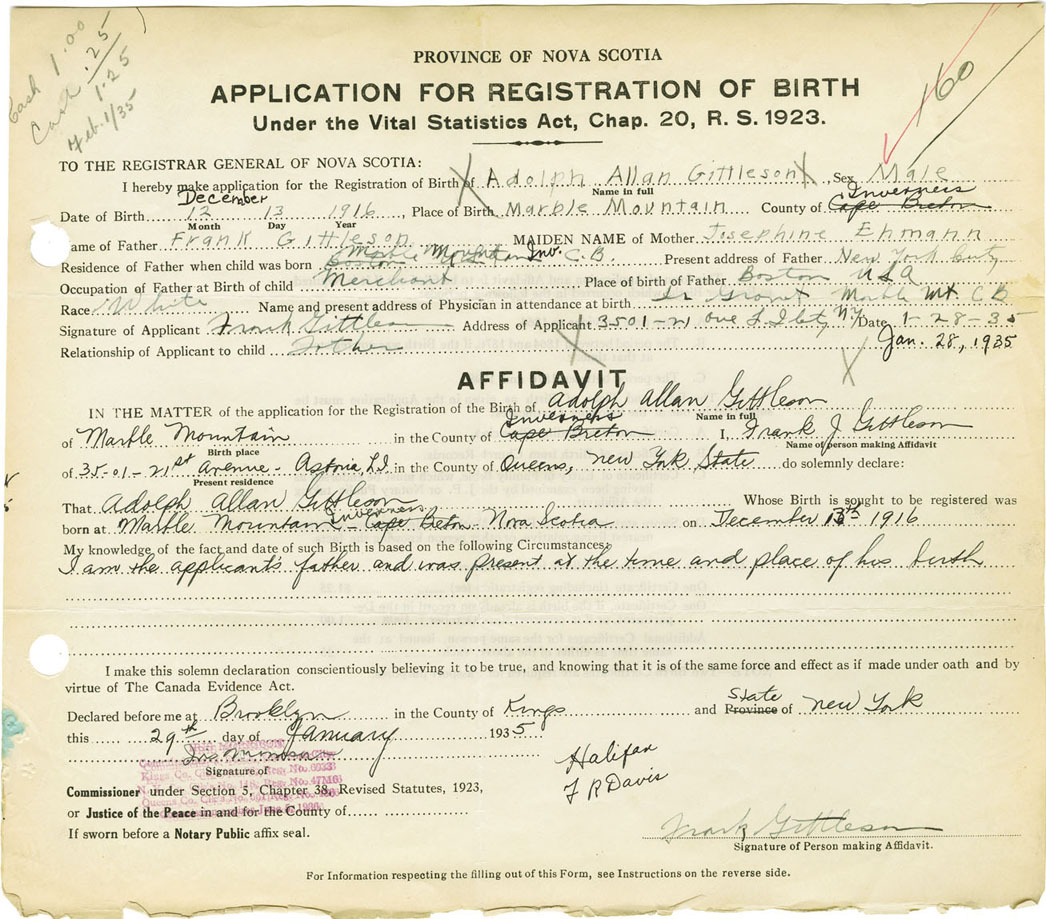 Cash 1.00
Cash .25
1.25
Feb. 1/35
160
PROVINCE OF NOVA SCOTIA
APPLICATION FOR REGISTRATION OF BIRTH
Under the Vital Statistics Act, Chap. 20, R. S. 1923.
TO THE REGISTRAR GENERAL OF NOVA SCOTIA:
I hereby make application for the Registration of Birth of X Adolph Allan Gittleson X, Sex Male
Name in full
December Inverness
Date of Birth 12 13 1916, Place of Birth Marble Mountain County of Cape Breton
Month Day Year
Name of Father Frank Gittleson MAIDEN NAME of Mother Josephine Ehmann
Marble Mountain Inv.
Residence of Father when child was born Boston C.B. Present address of Father New York City
Occupation of Father at Birth of child Merchant Place of birth of Father Boston USA
Race White Name and present address of Physician in attendance at birth Dr Grant Marble Mt. C B
Signature of Applicant Frank Gittleson Address of Applicant 3501-21 Ave L I City NY Date 1-28-35
Relationship of Applicant to child Father X Jan. 28, 1935
X
AFFIDAVIT
IN THE MATTER of the application for the Registration of the Birth of Adolph Allan Gittleson
Name in full
Inverness
of Marble Mountain in the County of Cape Breton I, Frank J Gittleson
Birth place Name of person making Affidavit
of 35-01-21st Avenue - Astoria, L.I. in the County of Queens, New York State do solemnly declare:
Present residence
That Adolph Allan Gittleson Whose Birth is sought to be registered was
Inverness
born at Marble Mountain - Cape Breton - Nova Scotia on December 13th 1916
My knowledge of the fact and date of such Birth is based on the following Circumstances:
I am the applicant's father and was present at the time and place of his birth
I make this solemn declaration conscientiously believing it to be true, and knowing that it is of the same force and effect as if made under oath and by
virtue of The Canada Evidence Act.
State
Declared before me at Brooklyn in the County of Kings and Province of New York
this 29th day of January 1935
Signature of
Halifax
F R Davis
Commissioner under Section 5, Chapter 38, Revised Statutes, 1923,
or Justice of the Peace in and for the County of
If sworn before a Notary Public affix seal.
Frank Gittleson
Signature of Person making Affidavit.
For Information respecting the filling out of this Form, see Instructions on the reverse side.